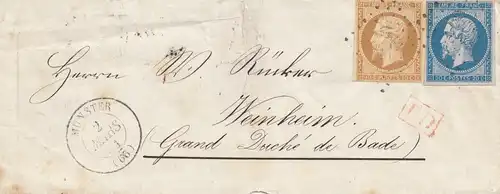 EMPIRE FRANC.
Herrn W. Rücker
10 C. POSTES 10 C.
20 C. POSTES 20 C.
Weinheim.
MUNSTER
2
(66)
P.D.
(Grand Duché de Bade)